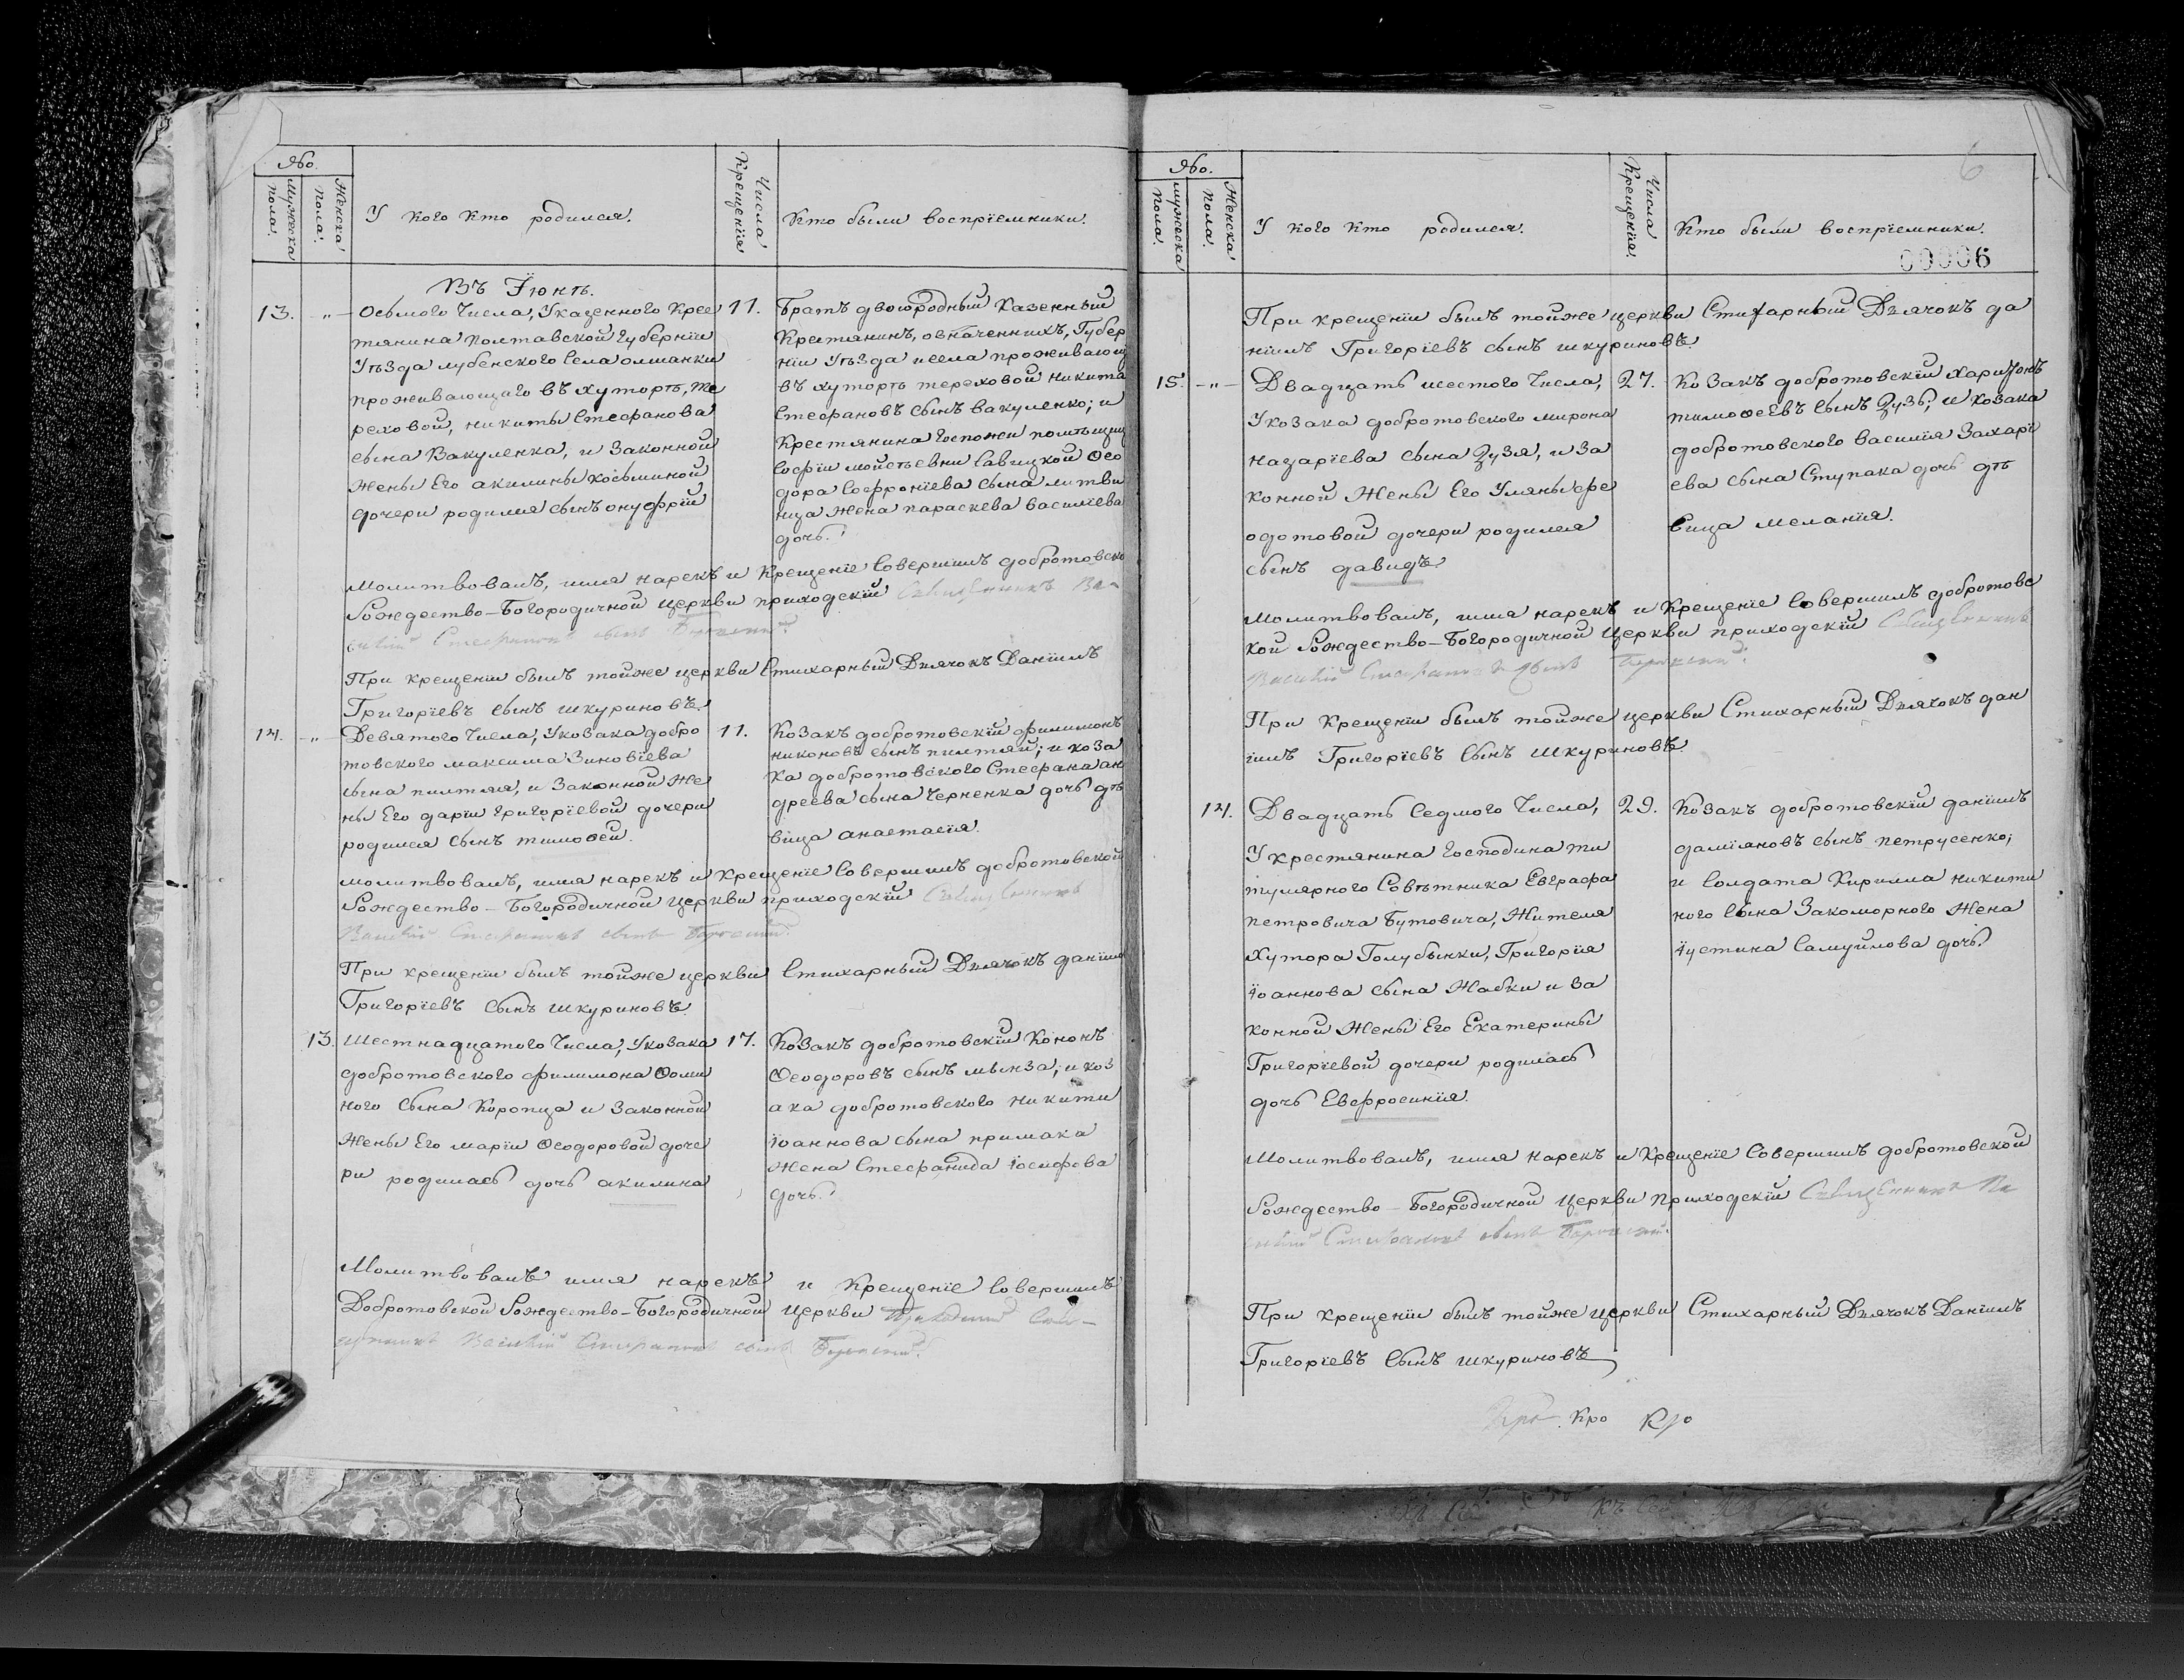 №.
Мужеска пола.
Женска пола.
У кого кто родился.
Числа Крещенїя
Кто были воспрїемники.
Въ Їюнѣ.
13. „ Осьмого Числа, У казенного Крес 11.
тянина полтавской губернїи
Уѣзда лубенского села олшанки
проживающаго въ хуторѣ, те
реховой, никиты Стефанова
сына Вакуленка, и Законной
Жены Его акилины косьминой
дочери родился сынъ онуфрїй
Братъ двоюродный казенный
Крестянинъ, означенныхъ, Губер
нїи Уѣзда и села проживающ
въ хуторѣ тереховой никита
Стефановъ сынъ вакуленко; и
Крестянина госпожи помѣщиц
Софїи мойсѣевни Савицкой Ѳео
дора Софронїева сына литви
нца жена параскева василїева
дочь.
Молитвовалъ, имя нарекъ и Крещенїе Совершилъ добротовско
Рождество-Богородичной церкви приходскїй Священникъ Ва-
силїй Стефановъ сынъ
При крещенїи былъ тойже церкви Стихарный Дьячокъ Данїилъ
Григорїевъ сынъ шкуриновъ.
14. „ Девятого Числа, У козака добро 11.
товского максима Зиновїева
сына пилтяя, и Законной Же
ны Его дарїи григорїевой дочери
родился сынъ тимоѳей.
Козакъ добротовскїй филимонъ
никоновъ сынъ пилтяй; и коза
ка добротовского Стефана ан
дреева сына Черненка дочь дѣ
вица анастасїя.
молитвовалъ, имя нарекъ и Крещенїе Совершилъ добротовской
Рождество-Богородичной церкви приходскїй Священникъ
Василїй Стефановъ сынъ
При крещенїи былъ тойже церкви Стихарный Дьячокъ данїил
Григорїевъ Сынъ шкуриновъ
13. Шестнадцатого Числа, У козака 17.
добротовского филимона Ѳоми
ного Сына Коропца и Законной
Жены Его марїи Ѳеодоровой доче
ри родилась дочь акилина
Козакъ добротовскїй Кононъ
Ѳеодоровъ сынъ мынза; и коз
ака добротовского никити
їоаннова сына примака
Жена Стефанида їосифова
дочь.
Молитвовалъ имя нарекъ и Крещенїе Совершилъ
Добротовской Рождество-Богородичной церкви Приходскїй Свя-
щенникъ Василїй Стефановъ сынъ
6
№.
мужеска пола.
Женска пола.
У кого кто родился.
Числа Крещенїя.
Кто были воспрїемники.
00006
При крещенїи былъ тойже церкви Стихарный Дьячокъ да
нїилъ Григорїевъ сынъ шкуриновъ.
15. „ Двадцать шестого Числа, 27.
У козака добротовского мирона
назарїева сына Зузя, и За
конной Жены Его Ульяны фе
одотовой дочери родился
сынъ давидъ.
Козакъ добротовскїй харитонъ
тимоѳеевъ сынъ Зузь; и козака
добротовского василїя Захарї
ева сына Ступака дочь дѣ
вица меланїя.
молитвовалъ, имя нарекъ и Крещенїе Совершилъ добротовс
кой Рождество-Богородичной церкви приходскїй Священникъ
Василїй Стефановъ сынъ
При Крещенїи былъ тойже церкви Стихарный Дьячокъ дан
їилъ Григорїевъ Сынъ шкуриновъ.
14. Двадцать Седмого Числа, 29.
У крестянина господина ти
тулярного Совѣтника Евграфа
петровича Бутовича, Жителя
Хутора Голубынки, Григорїя
їоаннова сына Жабки и За
конной Жены Его Екатерины
Григорїевой дочери родилась
дочь Евфросинїя.
Козакъ добротовскїй данїилъ
дамїановъ сынъ петрусенко;
и Солдата Кирилла никити
ного Сына Закоморного Жена
їустина Самуйлова дочь.
Молитвовалъ, имя нарекъ и Крещенїе Совершилъ добротовской
Рождество-Богородичной церкви приходскїй Священникъ Ва
силїй Стефановъ сынъ
При крещенїи былъ тойже церкви Стихарный Дьячокъ Данїилъ
Григорїевъ Сынъ шкуриновъ
Кро Кро Кро